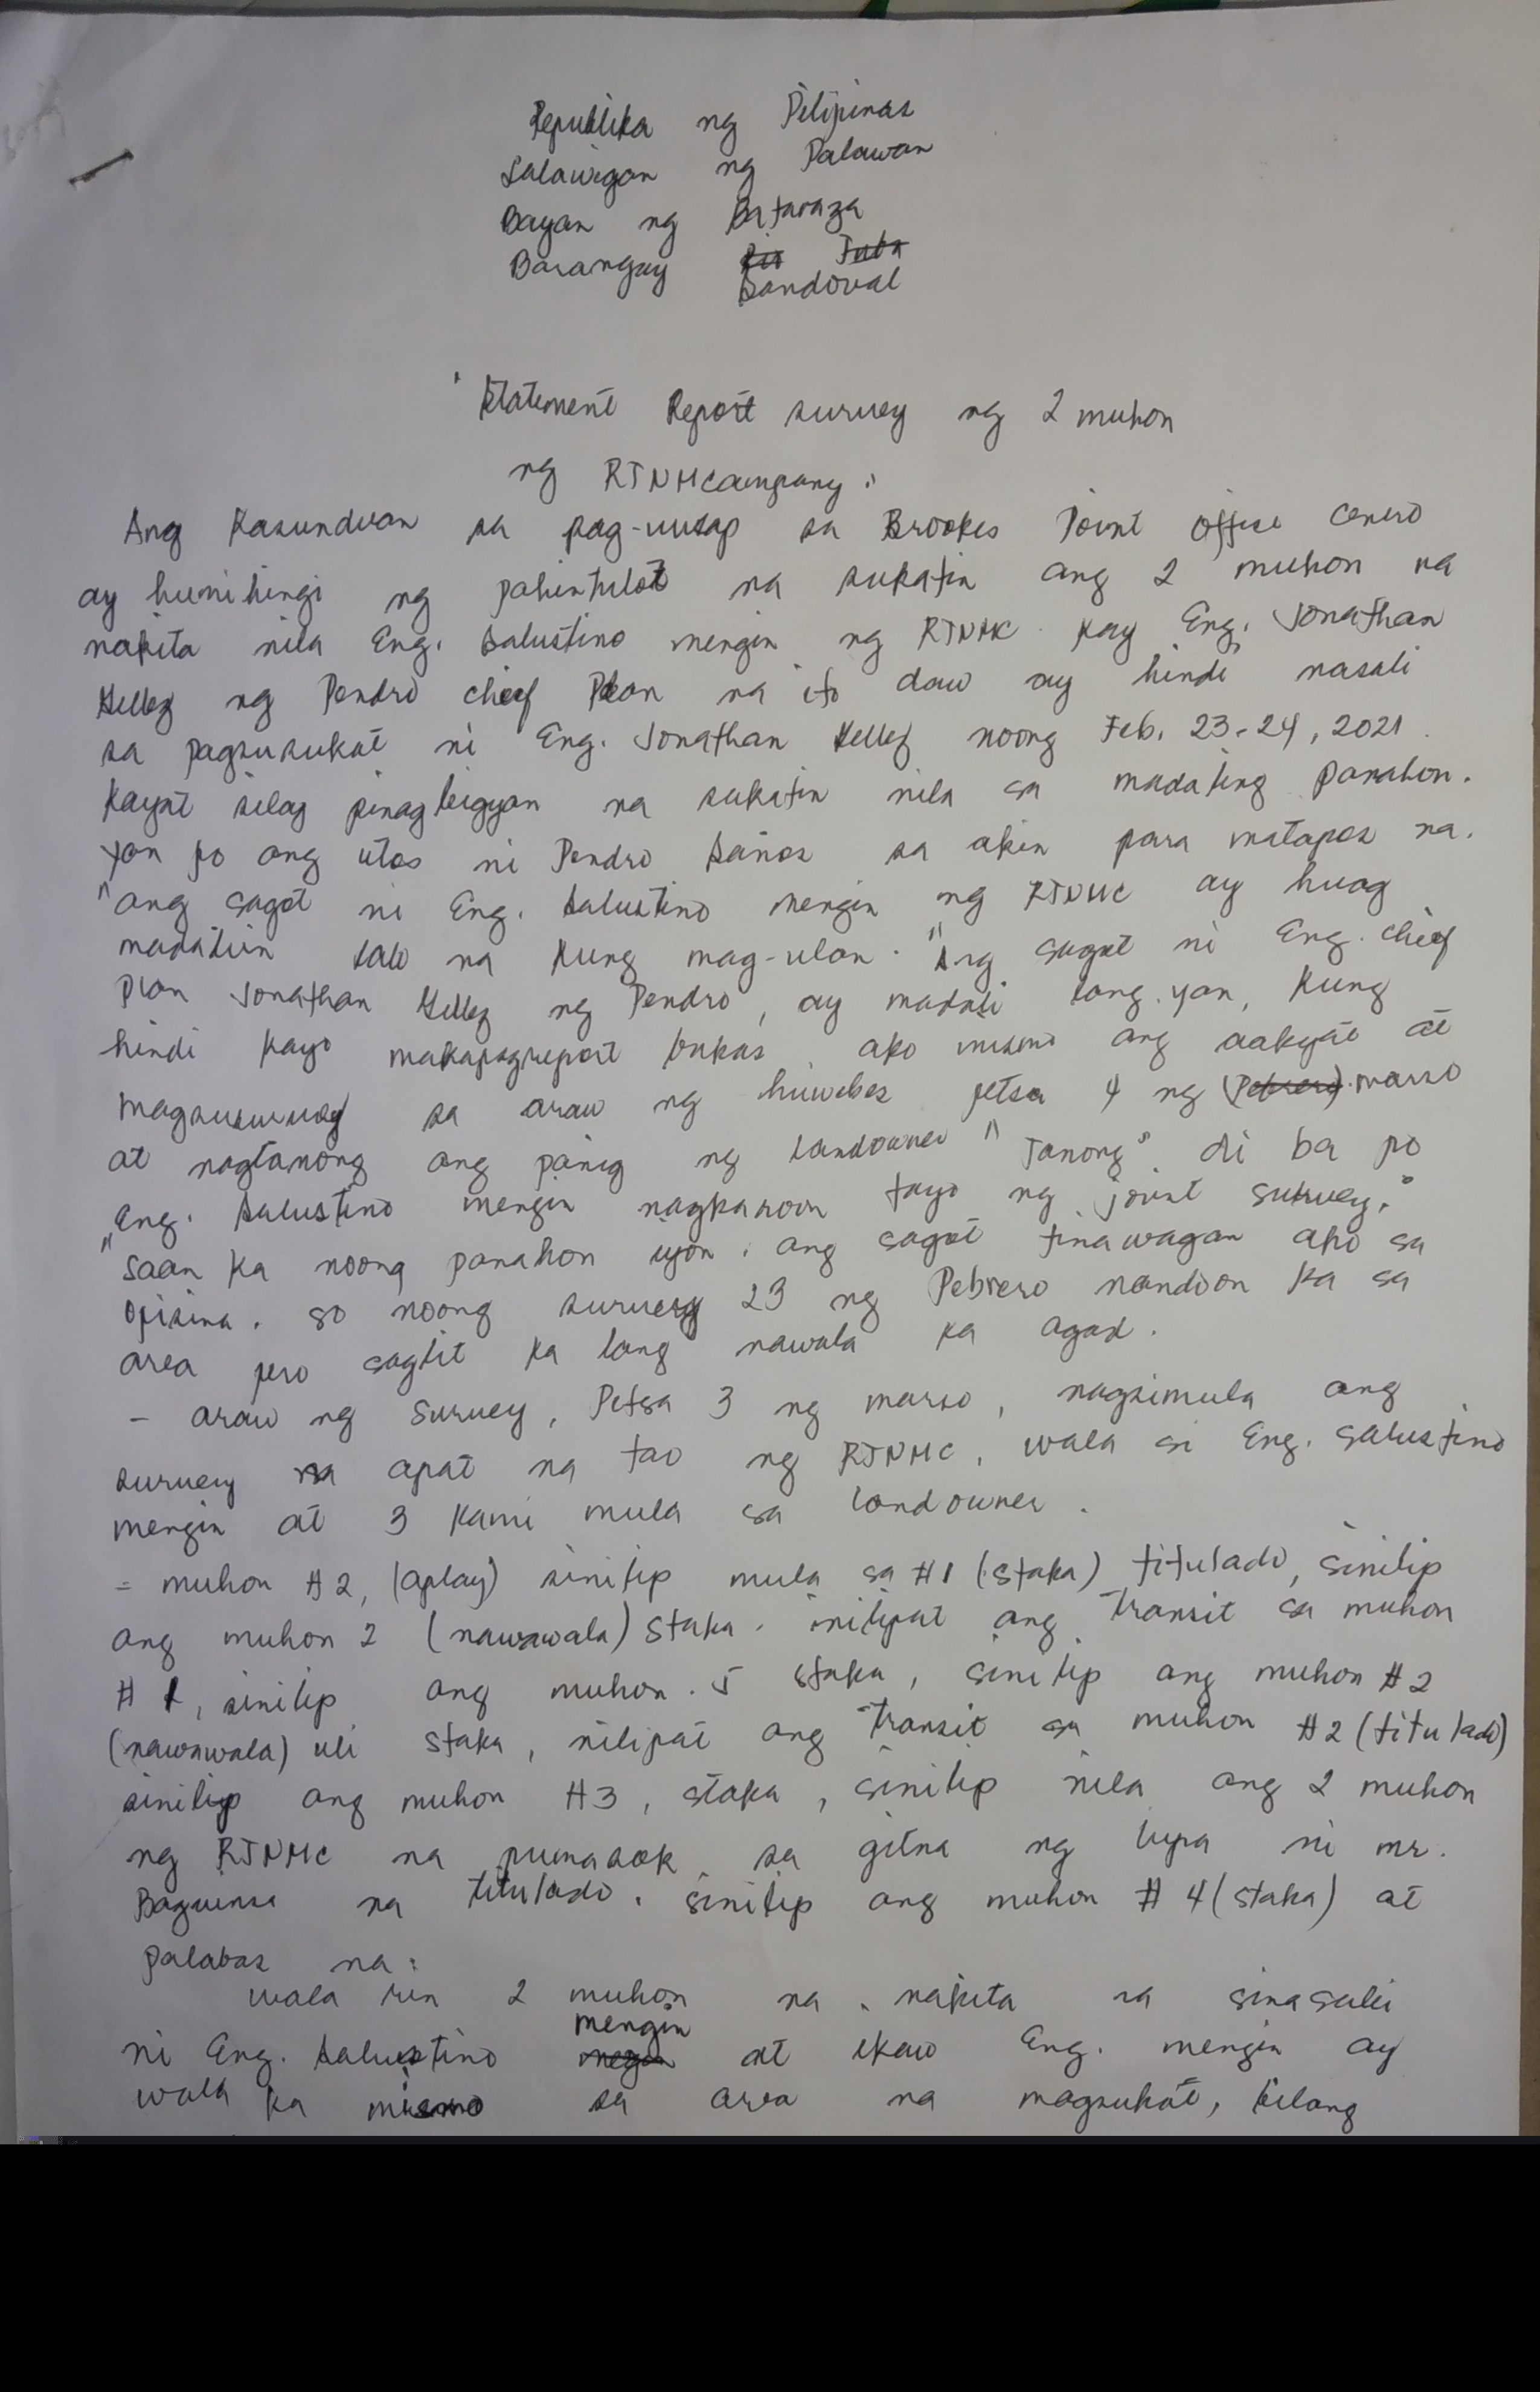 Republika ng Pilipinas
Lalawigan ng Palawan
Bayan ng Bataraza
Barangay Rio Tuba
Sandoval
Statement Report survey ng 2 muhon
ng RTNMCompany:
Ang Kasunduan sa pag-uusap sa Brookes Point office cenro
ay humihingi ng pahintulot na sukatin ang 2 muhon na
nakita nila Eng. Salustino mengin ng RTNMC kay Eng. Jonathan
ng Pendro chief Plan na ito daw ay hindi nasali
sa pagsusukat ni Eng. Jonathan noong Feb. 23-24, 2021.
Kayat silay pinagbigyan na sukatin nila sa madaling panahon.
yan po ang utos ni Pendro sa akin para matapos na.
"ang sagot ni Eng. Salustino mengin ng RTNMC ay huag
madaliin lalo na kung mag-ulan." Ang sagot ni Eng. chief
plan Jonathan ng Pendro, ay madali lang yan, kung
hindi kayo makapagreport bukas, ako mismo ang aakyat at
sa araw ng huwebes petsa 4 ng (Pebrero) marso
at nagtanong ang panig ng landowner "Tanong". di ba po
Eng. Salustino mengin nagkaroon tayo ng joint survey,
"saan ka noong panahon iyon. ang sagot tinawagan ako sa
opisina. so noong survey 23 ng Pebrero nandoon ka sa
area pero saglit ka lang nawala ka agad.
- araw ng survey, Petsa 3 ng marso, nagsimula ang
survey na apat na tao ng RTNMC, wala si Eng. Salustino
mengin at 3 kami mula sa landowner.
= muhon #2, (aplay) sinilip mula sa #1 (staka) titulado, sinilip
ang muhon 2 (nawawala) staka. inilipat ang transit sa muhon
# 1, sinilip ang muhon. 5 staka, sinilip ang muhon #2
(nawawala) uli staka, nilipat ang transit sa muhon #2 (titulado)
sinilip ang muhon #3, staka, sinilip nila ang 2 muhon
ng RTNMC na pumasok sa gitna ng lupa ni mr.
na titulado. sinilip ang muhon # 4 (staka) at
palabas na:
wala rin 2 muhon na nakita na sinasabi
mengin
ni Eng. Salustino at ikaw Eng. mengin ay
wala ka mismo sa area na magsukat, bilang